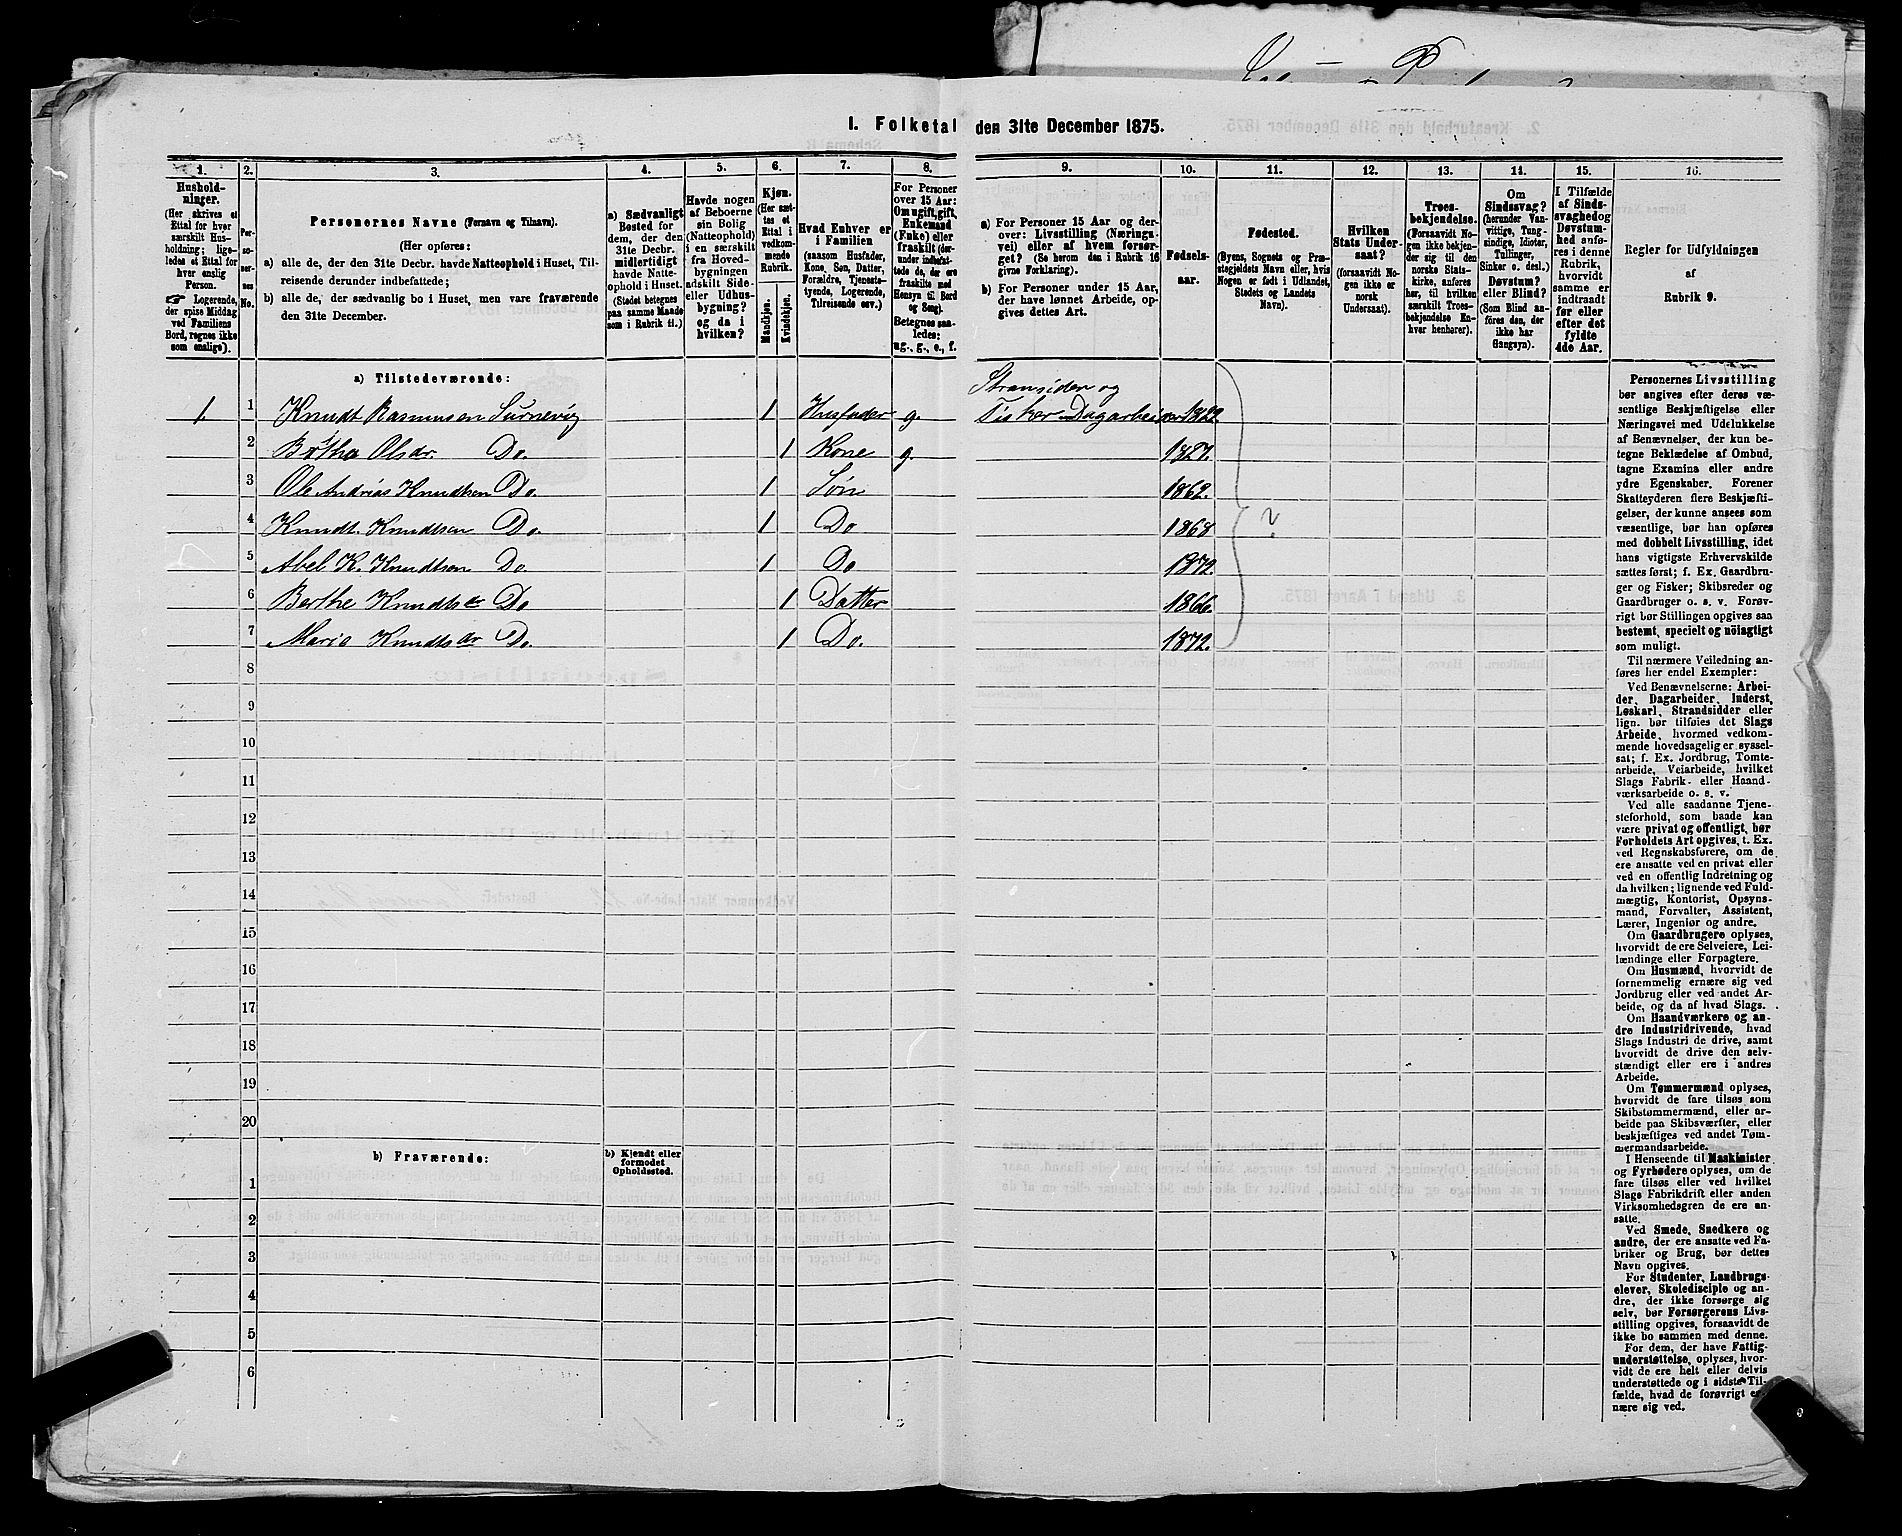 I. Folketal den 31te December 1875.
1. 2. 3. 4. 5. 6. 7. 8. 9. 10. 11. 12. 13. 14. 15. 16.
Hushold-
ninger.
(Her skrives et
Ettal for hver
særskilt Hus-
holdning; lige-
ledes et Ettal for
hver enslig
Person.
☛ Logerende,
der spise Middag
ved Familiens
Bord, regnes ikke
som enslige).
Per-
so-
ner-
nes
No.
Personernes Navne (Fornavn og Tilnavn).
(Her opføres:
a) alle de, der den 31te Decbr. havde Natteophold i Huset, Til-
reisende derunder indbefattede;
b) alle de, der sædvanlig bo i Huset, men vare fraværende
den 31te December.
a) Sædvanligt
Bosted for
dem, der den
31te Decbr.
midlertidigt
havde Natte-
ophold i Huset.
(Stedet betegnes
paa samme Maade
som i Rubrik 11.)
Havde nogen
af Beboerne
sin Bolig
(Natteophold)
i en særskilt
fra Hoved-
bygningen
adskilt Side-
eller Udhus-
bygning?
og da i
hvilken?
Kjøn.
(Her sæt-
tes et
Ettal i
vedkom-
mende
Rubrik.
Mandkjøn.
Kvindekjøn.
Hvad Enhver er
i Familien
(saasom Husfader,
Kone, Søn, Datter,
Forældre, Tjeneste-
tyende, Logerende,
Tilreisende osv.)
For Personer
over 15 Aar:
Om ugift, gift,
Enkemand
(Enke) eller
fraskilt (der-
under indbefat-
tede de, der ere
fraskilte med
Hensyn til Bord
og Seng).
Betegnes saa-
ledes:
ug., g., e., f.
a) For Personer 15 Aar og der-
over: Livsstilling (Nærings-
vei) eller af hvem forsør-
get? (Se herom den i Rubrik 16
givne Forklaring).
b) For Personer under 15 Aar,
der have lønnet Arbeide, op-
gives dettes Art.
Fødsels-
aar.
Fødested.
(Byens, Sognets og Præ-
stegjeldets Navn eller, hvis
Nogen er født i Udlandet,
Stedets og Landets
Navn).
Hvilken
Stats Under-
saat?
(forsaavidt No-
gen ikke er
norsk
Undersaat).
Troes-
bekjendelse.
(Forsaavidt No-
gen ikke bekjen-
der sig til den
norske Stats-
kirke, anføres
her, til hvilken
særskilt Troes-
bekjendelse En-
hver henhører).
Om
Sindssvag?
(herunder Van-
vittige, Tung-
sindige, Idioter,
Tullinger,
Sinker o. desl.)
Døvstum?
eller Blind?
(Som Blind an-
føres den, der
ikke har
Gangsyn).
I Tilfælde
af Sinds-
svaghed og
Døvstum-
hed anfø-
res i denne
Rubrik,
hvorvidt
samme er
indtraadt
før eller
efter det
fyldte
4de Aar.
Regler for Udfyldningen
af
Rubrik 9.
a) Tilstedeværende:
Stransider og
1. 1 Knudt Rasmussen Surnevig 1 Husfader g. Fisker Dagarbeider 1822.
2 Brtha Olsdr. Do. 1 Kone g. 1827.
3 Ole Andrias Knudtsen Do. 1 Søn 1862.
4 Knudt. Knudtsen Do. 1 Do 1868 ?
5 Abel K. Knudtsen Do. 1 Do 1872.
6 Berthe Knudtsdr Do 1 Datter 1866.
7 Marie Knudtsdr Do. 1 Do. 1872.
8
9
10
11
12
13
14
15
16
17
18
19
20
b) Fraværende:
b) Kjendt eller
formodet
Opholdssted.
1
2
3
4
5
6
Personernes Livsstilling
bør angives efter deres væ-
sentlige Beskjæftigelse eller
Næringsvei med Udelukkelse
af Benævnelser, der kun be-
tegne Beklædelse af Ombud,
tagne Examina eller andre
ydre Egenskaber. Forener
Skatteyderen flere Beskjæfti-
gelser, der kunne ansees som
væsentlige, bør han opføres
med dobbelt Livsstilling, idet
hans vigtigste Erhvervskilde
sættes først; f. Ex. Gaardbru-
ger og Fisker; Skibsreder og
Gaardbruger o. s. v. Forøv-
rigt bør Stillingen opgives saa
bestemt, specielt og nöiagtigt
som muligt.
Til nærmere Veiledning an-
føres her endel Exempler:
Ved Benævnelserne: Arbei-
der, Dagarbeider, Inderst,
Løskarl, Strandsidder eller
lign. bør tilføies det Slags
Arbeide, hvormed vedkom-
mende hovedsagelig er syssel-
sat; f. Ex. Jordbrug, Tomte-
arbeide, Veiarbeide, hvilket
Slags Fabrik- eller Haand-
værksarbeide o. s. v.
Ved alle saadanne Tjene-
steforhold, som baade kan
være privat og offentligt, bør
Forholdets Art opgives, t. Ex.
ved Regnskabsførere, om de
ere ansatte ved en privat eller
ved en offentlig Indretning og
da hvilken; lignende ved Fuld-
mægtig, Kontorist, Opsyns-
mand, Forvalter, Assistent,
Lærer, Ingeniør og andre.
Om Gaardbrugere oplyses,
hvorvidt de ere Selveiere, Lei-
lændinge eller Forpagtere.
Om Husmænd, hvorvidt de
fornemmelig ernære sig ved
Jordbrug eller ved andet Ar-
beide, og da af hvad Slags.
Om Haandværkere og an-
dre Industridrivende, hvad
Slags Industri de drive, samt
hvorvidt de drive den selv-
stændigt eller ere i andres
Arbeide.
Om Tømmermænd oplyses,
hvorvidt de fare tilsøs som
Skibstømmermænd, eller ar-
beide paa Skibsværfter, eller
beskjæftiges ved andet Tøm-
mermandsarbeide.
I Henseende til Maskinister
og Fyrbødere oplyses, om de
fare tilsøs eller ved hvilket
Slags Fabrikdrift eller anden
Virksomhedsgren de ere an-
satte.
Ved Smede, Snedkere og
andre, der ere ansatte ved Fa-
briker og Brug, bør dettes
Navn opgives.
For Studenter, Landbrugs-
elever, Skoledisciple og an-
dre, der ikke forsørge sig
selv, bør Forsørgerens Livs-
stilling opgives, forsaavidt de
ikke bo sammen med denne.
For dem, der have Fattig-
understøttelse, oplyses, hvor-
vidt de ere helt eller delvis
understøttede og i sidste Til-
fælde, hvad de forøvrigt er-
nære sig ved.